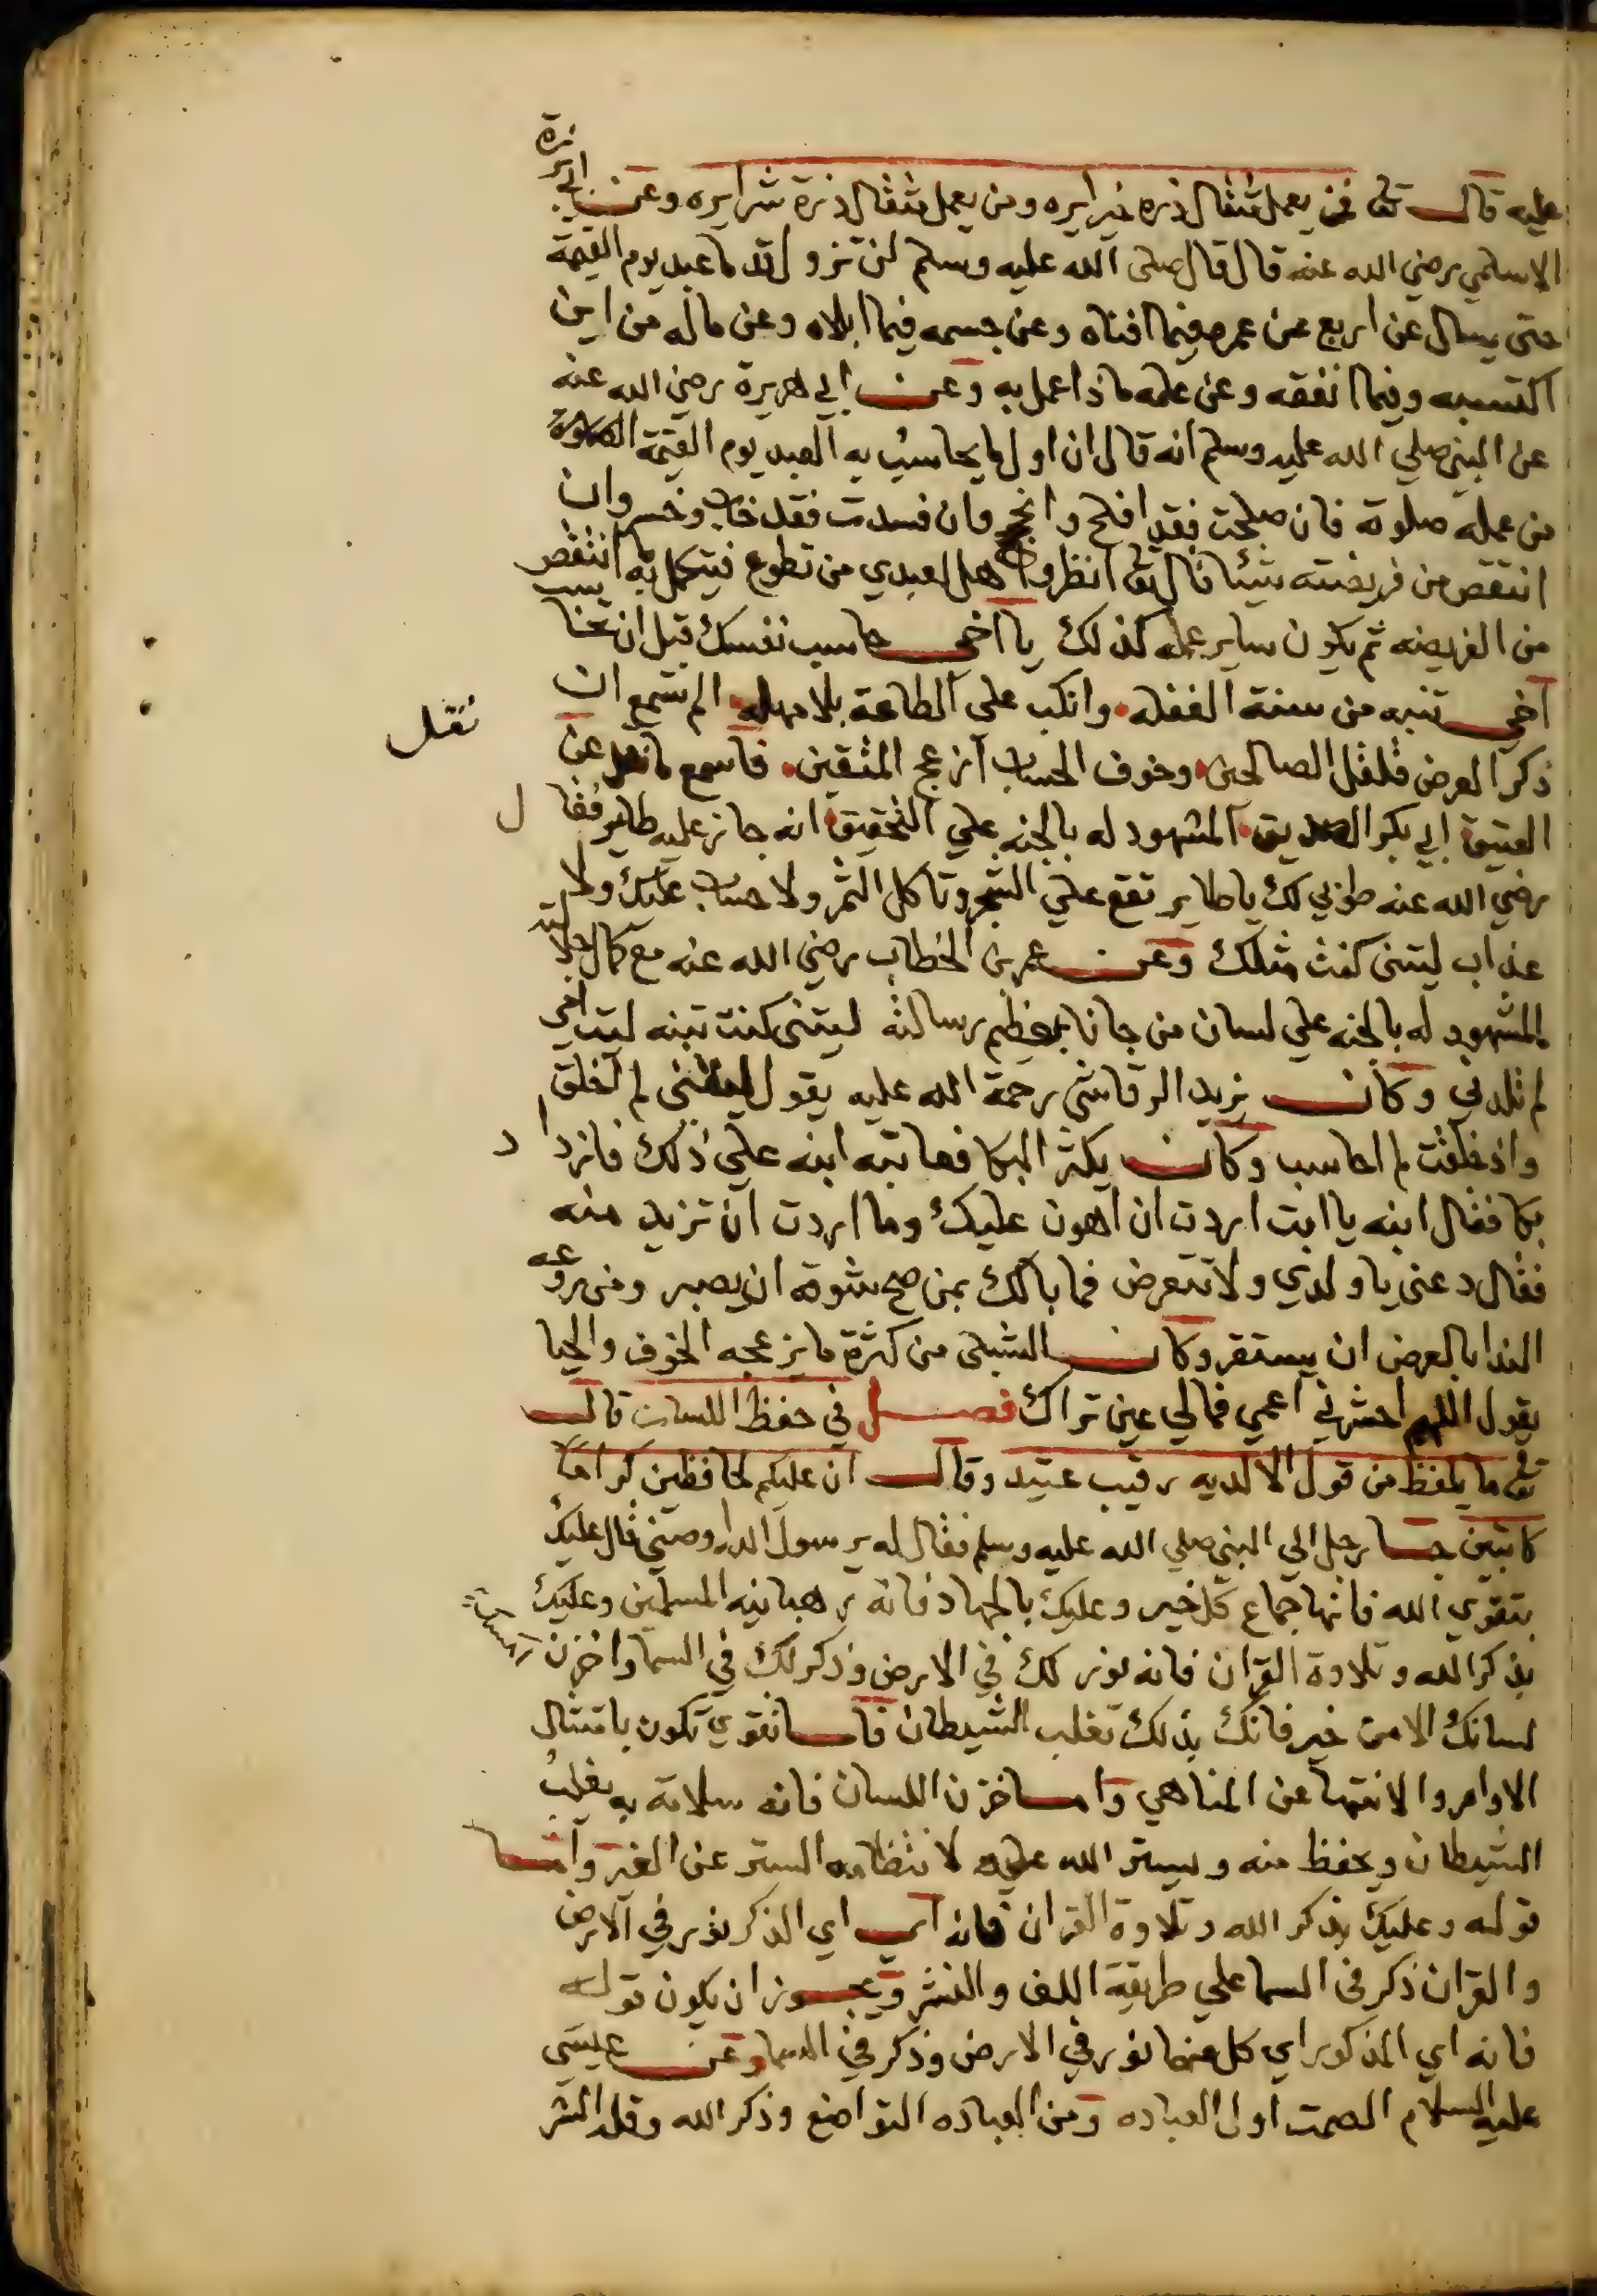 عليه قال تعالى فمن يعمل مثقال ذرة خيرا يره ومن يعمل مثقال ذرة شرا يره وعن ابي برزة
الاسلمي رضي الله عنه قال قال صلى الله عليه وسلم لن تزول قدما عبد يوم القيمة
حتى يسال عن اربع عن عمره فيما افناه وعن جسمه فيما ابلاه وعن ماله من اين
اكتسبه وفيما انفقه وعن علمه ماذا عمل به وعن ابي هريرة رضي الله عنه
عن النبي صلي الله عليه وسلم انه قال ان اول ما يحاسب به العبد يوم القيمة الصلوة
من عمله صلوته فان صلحت فقد افلح وانجح وان فسدت فقد خاب وخسر وان
انتقص من فريضته شيئا قال تعالى انظروا هل لعبدي من تطوع فيتكمل به ما انتقص
من الفريضه ثم يكون ساير عمله كذلك يا اخي حاسب نفسك قبل ان تحاسب
اخي تنبه من سنة الغفله وانكب علي الطاعة بلا مهله الم تسمع ان
ذكر العرض قلقل الصالحين وخوف الحساب ازعج المتقين فاسمع ما نقل عن
نقل
العتيق ابي بكر الصديق المشهود له بالجنه علي التحقيق انه جاز عليه طاير فقال
رضي الله عنه طوبي لك يا طاير تقع علي الشجر وتاكل الثمر ولا حساب عليك ولا
عذاب ليتني كنت مثلك وعن عمر بن الخطاب رضي الله عنه مع كمال جلالته
المشهود له بالجنه علي لسان من جانا بعظيم رسالته ليتني كنت تبنه ليت امي
لم تلدني وكان يزيد الرقاشي رحمة الله عليه يقول ليتني لم اخلق
واذ خلقت لم احاسب وكان يكثر البكا فعاتبه ابنه علي ذلك فازداد
بكا فقال ابنه يا ابت اردت ان اهون عليك وما اردت ان تزيد منه
فقال دعني يا ولدي ولا تتعرض فما بالك بمن صح شوقه ان يصبر ومن روعه
الندا بالعرض ان يستقر وكان الشبلي من كثرة ما يزعجه الخوف والحيا
يقول اللهم احشرني اعمي فمالي عين تراك فصل في حفظ اللسان قال
تعالى ما يلفظ من قول الا لديه رقيب عتيد وقال ان عليكم لحافظين كراما
كاتبين جا رجل الي النبي صلي الله عليه وسلم فقال له يرسول الله اوصني قال عليك
بتقوي الله فانها جماع كل خير وعليك بالجهاد فانه رهبانيه المسلمين وعليك
بذكر الله وتلاوة القران فانه نور لك في الارض وذكر لك في السما واخزن
لسانك الا من خير فانك بذلك تغلب الشيطان فالتقوي تكون بامتثال
الاوامر والانتها عن المناهي واما خزن اللسان فانه سلامة به يغلب
الشيطان ويحفظ منه ويستر الله عليه لانتظامه الستر عن الغير واما
قوله وعليك بذكر الله وتلاوة القران فانه اي الذكر نور في الارض
والقران ذكر في السما علي طريقة اللف والنشر ويجوز ان يكون قوله
فانه اي المذكور اي كل منهما نور في الارض وذكر في السما وعن عيسى
عليه السلام الصمت اول العباده ومن العباده التواضع وذكر الله وقلة الشر